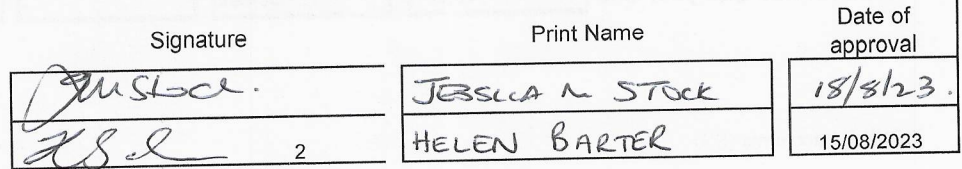 Signature Print Name Date of
approval
JMStock. JESSICA M STOCK 18/8/23.
2 HELEN BARTER 15/08/2023